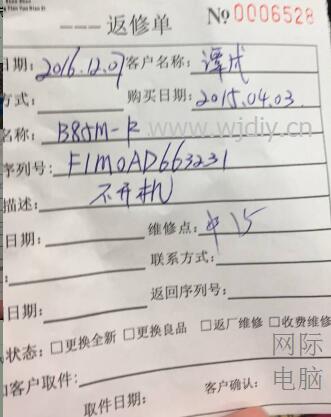 ---返修单 No 0006528
日期: 2016.12.07 客户名称: 谭成
方式: 购买日期: 2015.04.03
名称: B85M-K www.wjdiy.cn
序列号: F1M0AD663231
描述: 不开机
日期: 维修点: 中15
联系方式:
日期: 返回序列号:
状态: □更换全新 □更换良品 □返厂维修 □收费维修
客户取件: 网际
取件日期: 客户确认: 电脑